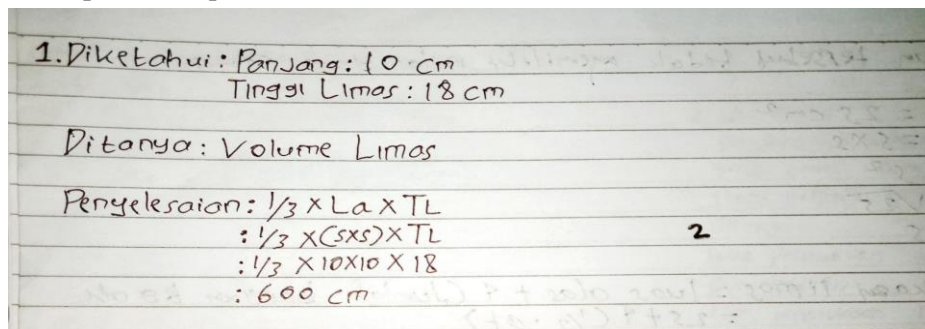 1. Diketahui : Panjang : 10 cm
Tinggi Limas : 18 cm
Ditanya : Volume Limas
Penyelesaian : 1/3 x La x TL
: 1/3 x (sxs) x TL
2
: 1/3 x 10x10 x 18
: 600 cm